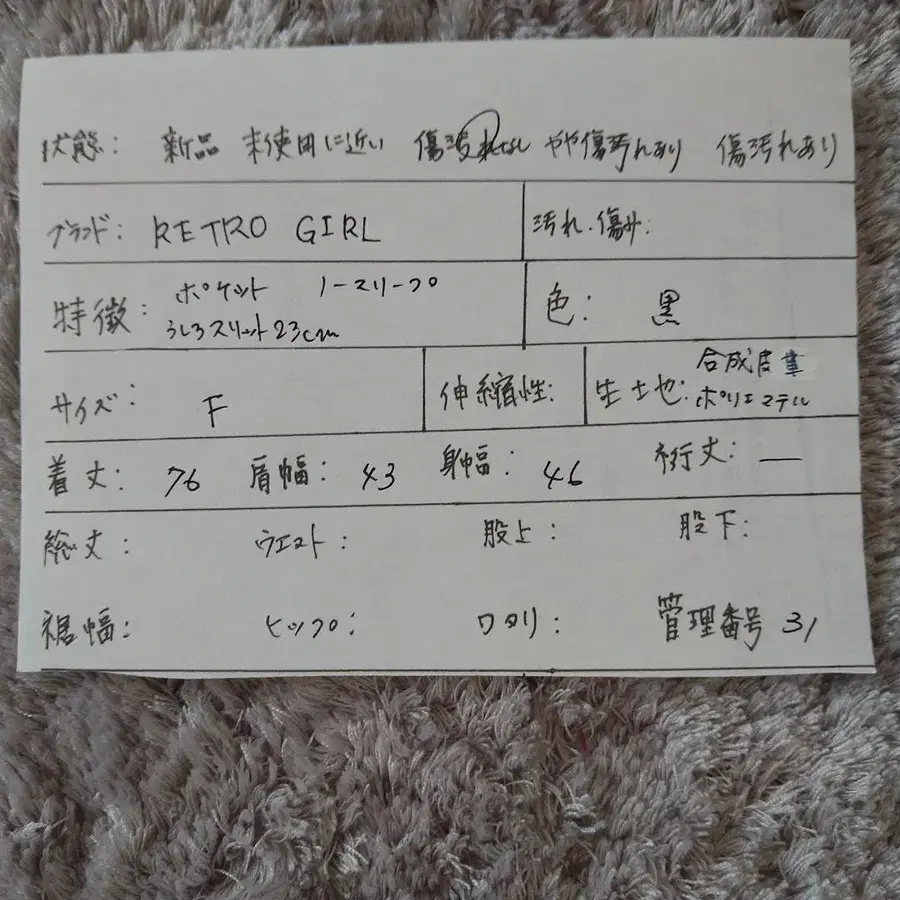 状態: 新品 未使用に近い 傷汚れなし やや傷汚れあり 傷汚れあり
ブランド: RETRO GIRL 汚れ・傷み:
特徴: ポケット ノースリーブ
うしろスリット23cm
色: 黒
サイズ: F 伸縮性: 生土也: 合成皮革
ポリエステル
着丈: 76 肩幅: 43 身幅: 46 裄丈: —
総丈: ウエスト: 股上: 股下:
裾幅: ヒップ: ワタリ: 管理番号 31